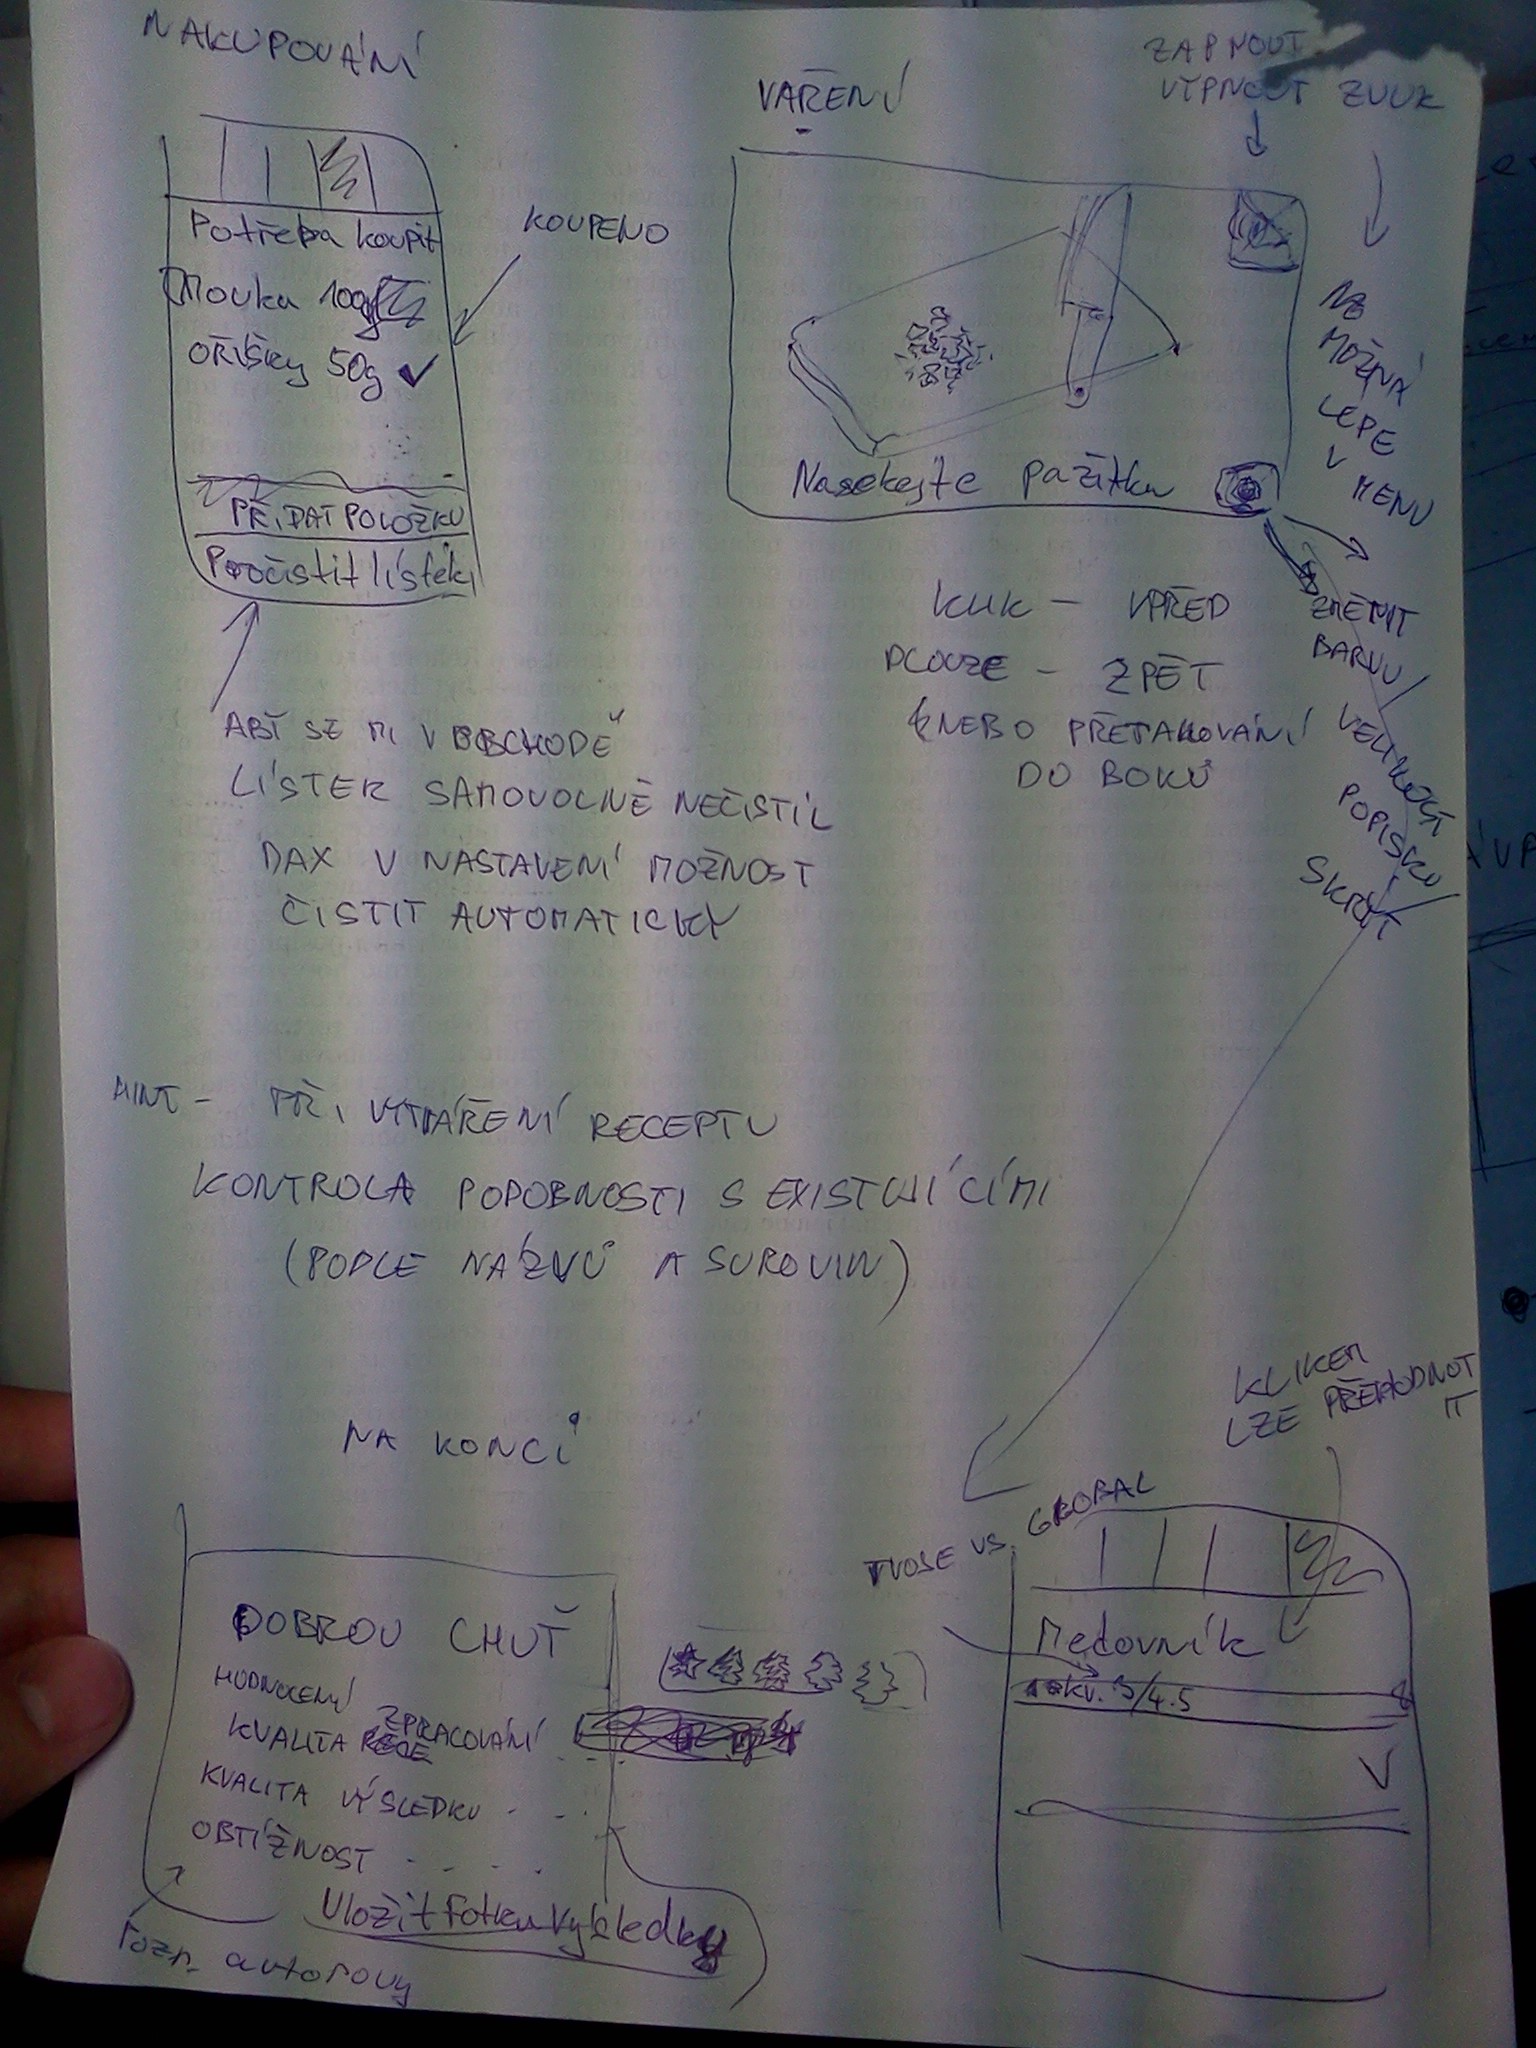 NAKUPOVÁNÍ
Potřeba koupit
Mouka 100g
OŘÍŠKY 50g ✓
PŘIDAT POLOŽKU
Pročistit lístek
KOUPENO
ABY SE MI V OBCHODĚ
LÍSTEK SAMOVOLNĚ NEČISTIL
DAX V NASTAVENÍ MOŽNOST
ČISTIT AUTOMATICKY
VAŘENÍ
ZAPNOUT
VYPNOUT ZVUK
MOŽNÁ
LÉPE
V
MENU
Nasekejte pažitku
KLIK - VPŘED
DLOUZE - ZPĚT
(NEBO PŘETAHOVÁNÍ
DO BOKŮ
ZMĚNIT
BARVU /
VELIKOST
POPISKU /
SKRÝT
HINT - PŘI VYTVÁŘENÍ RECEPTU
KONTROLA PODOBNOSTI S EXISTUJÍCÍMI
(PODLE NÁZVŮ A SUROVIN)
NA KONCI
DOBROU CHUŤ
HODNOCENÍ
KVALITA ZPRACOVÁNÍ
KVALITA VÝSLEDKU
OBTÍŽNOST
Uložit fotku výsledku
Pozn. autorovy
KLIKEM
LZE PŘEHODNOT
IT
TVOJE VS. GLOBAL
Medovník
kv. 3/4.5